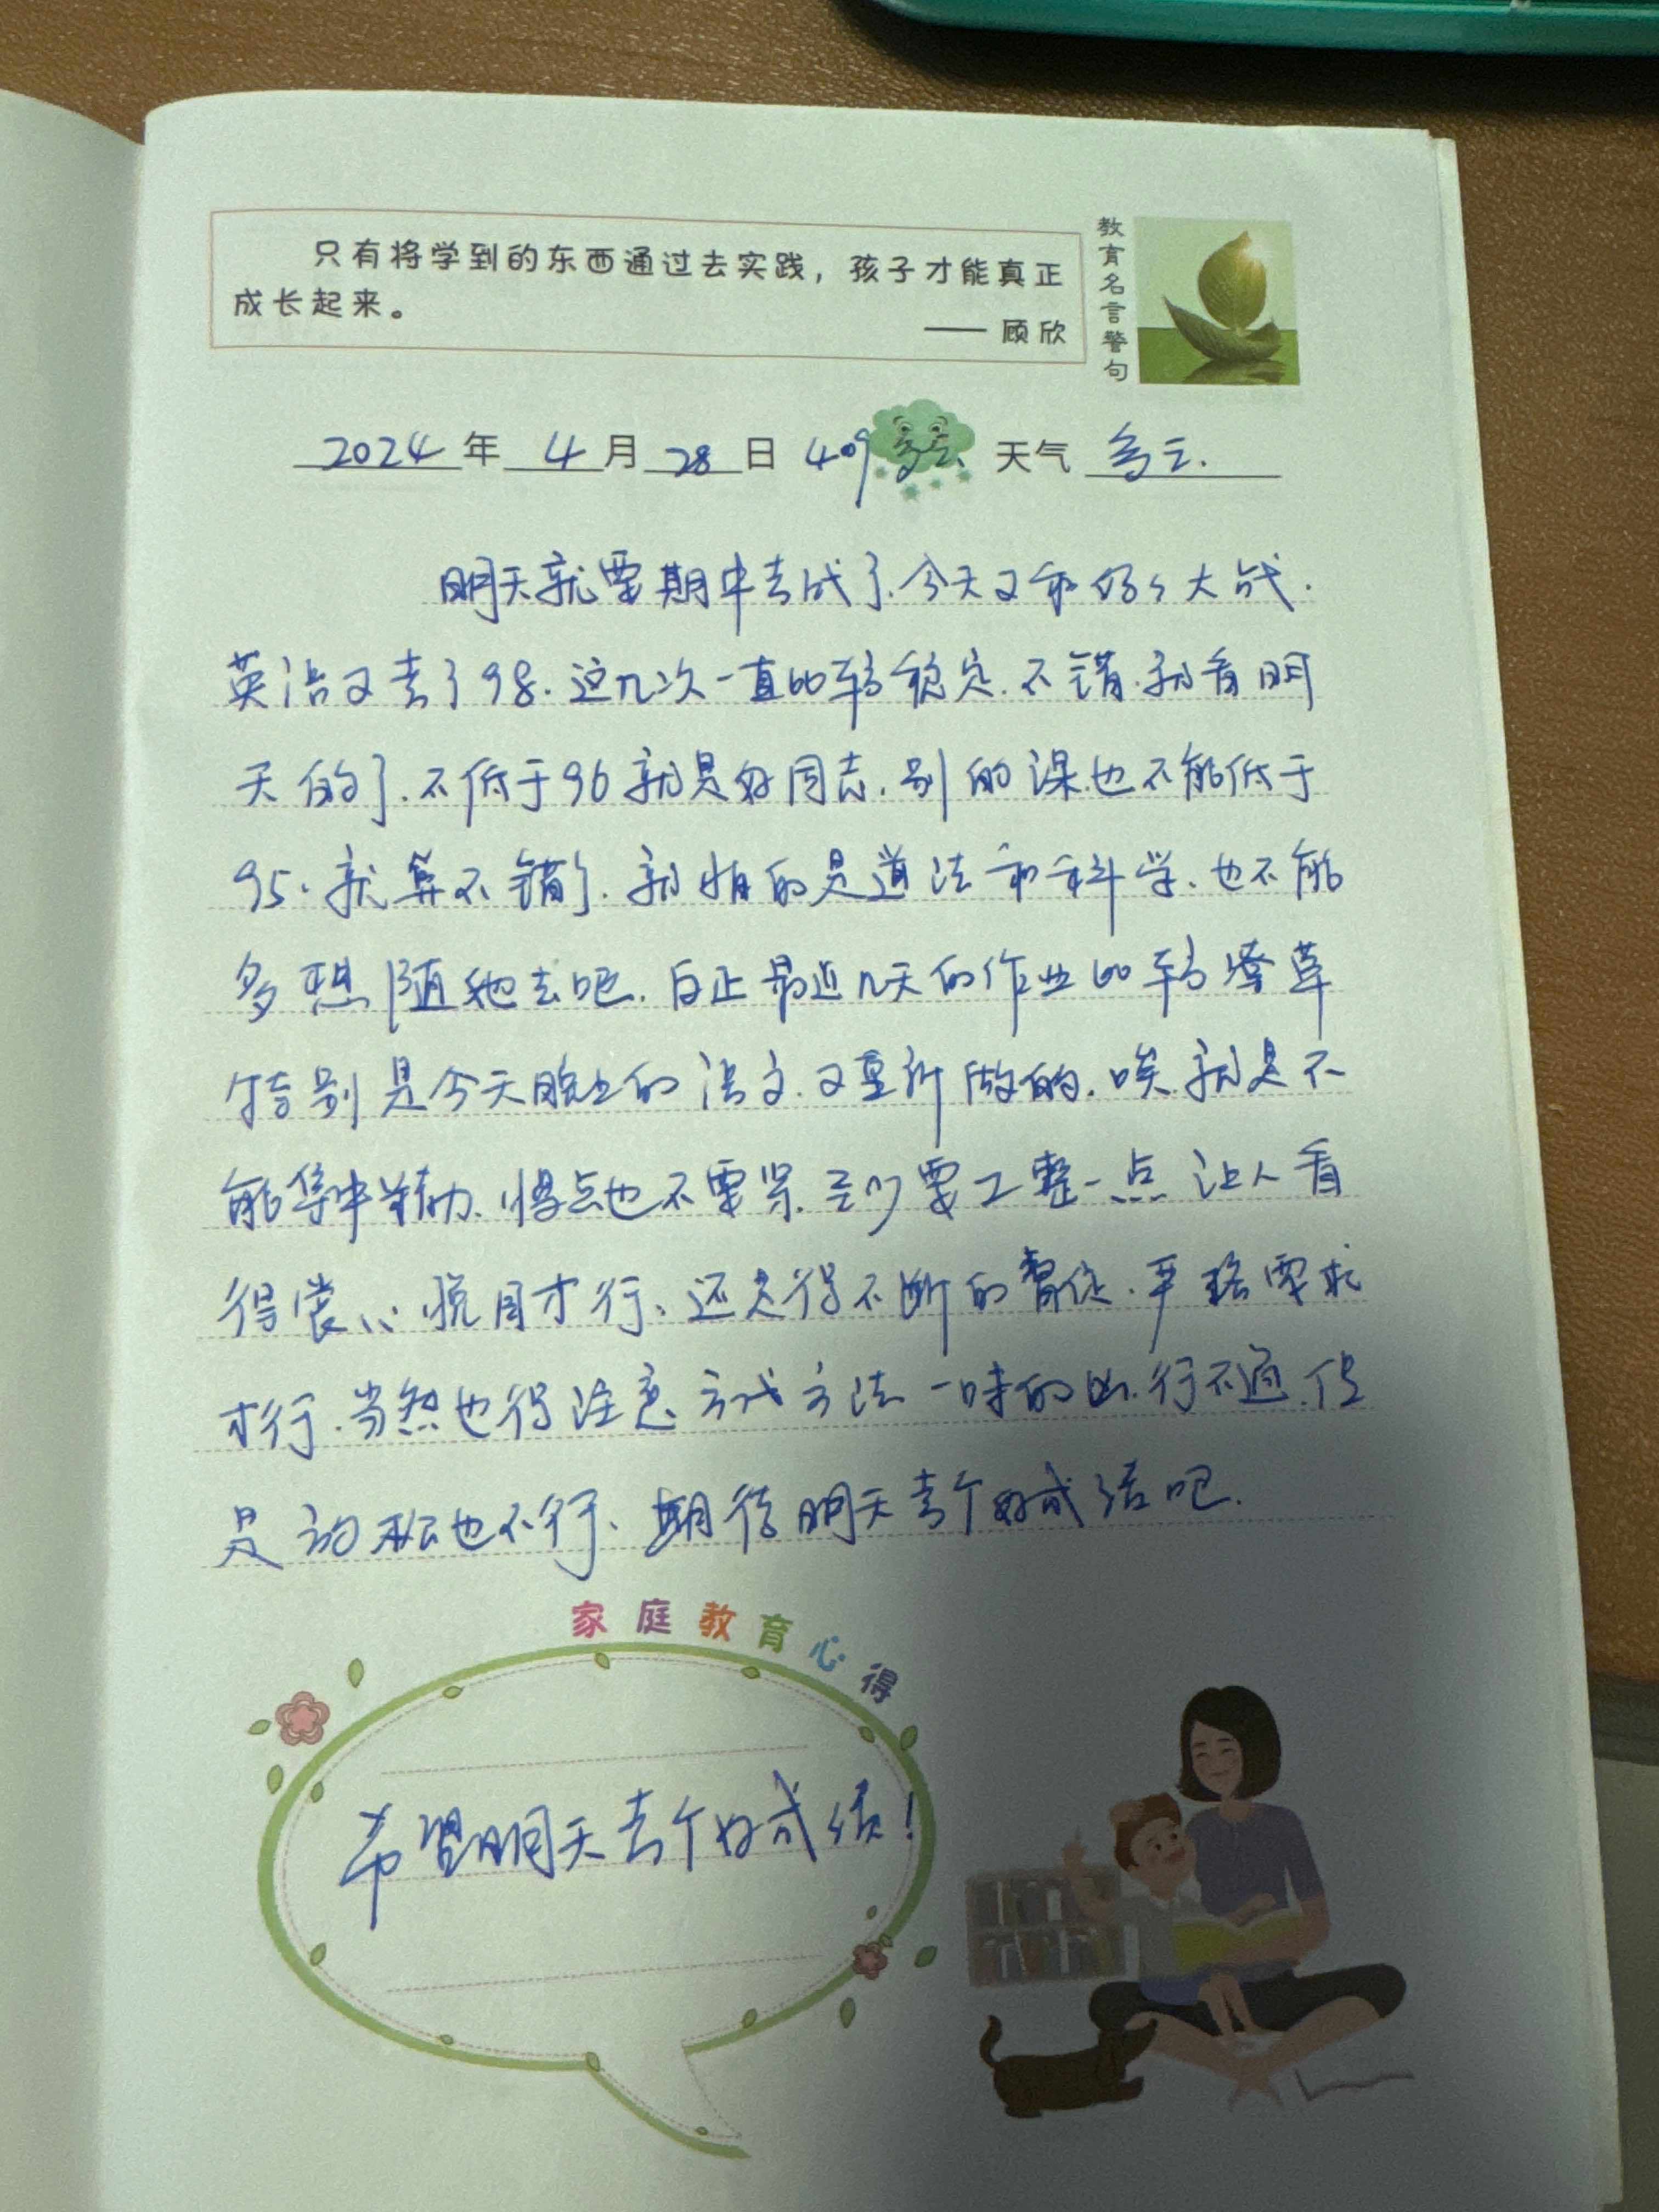 只有将学到的东西通过去实践，孩子才能真正
成长起来。
—— 顾欣
教育名言警句
2024 年 4 月 28 日 409 多云 天气 多云.
明天就要期中考试了.今天又和妈妈大战.
英语又考了98.这几次一直比较稳定.不错.就看明
天的了.不低于96就是好同志.别的课也不能低于
95.就算不错了.就怕的是道法和科学.也不能
多想随她去吧.反正最近几天的作业比较潦草
特别是今天晚上的语文.又重新做的.唉.就是不
能集中精力.慢点也不要紧.至少要工整一点 让人看
得赏心悦目才行.还是得不断的督促.严格要求
才行.当然也得注意方式方法 一味的凶.行不通.但
是放松也不行.期待明天考个好成绩吧.
家庭教育心得
希望明天考个好成绩!